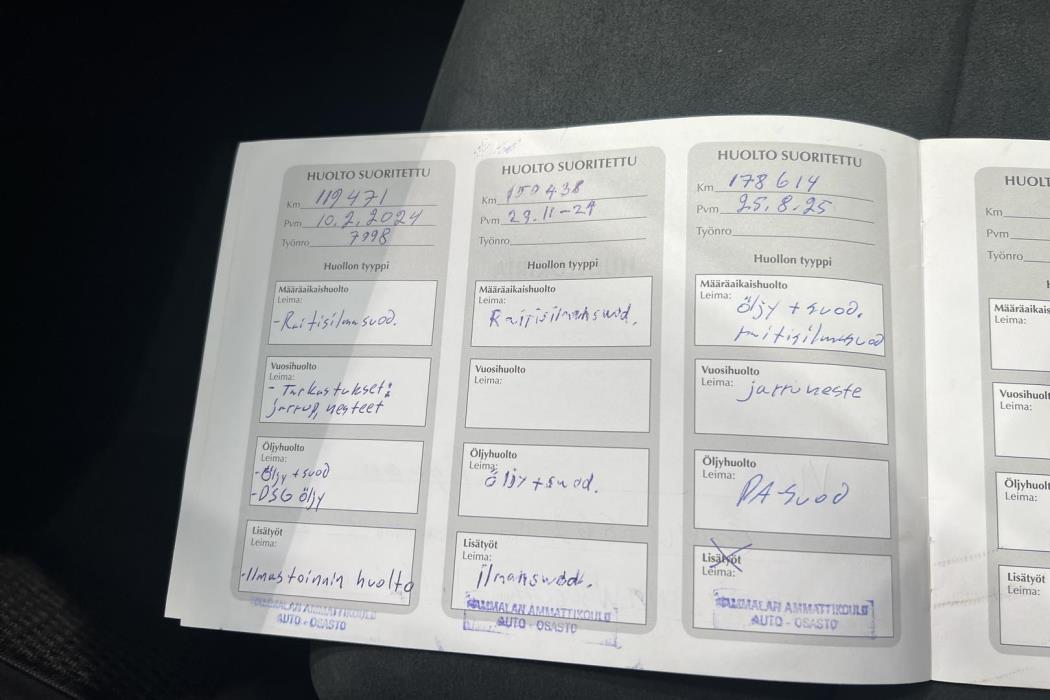 HUOLTO SUORITETTU
Km 119471
Pvm 10.2.2024
Työnro 7998
Huollon tyyppi
Määräaikaishuolto
Leima:
-Raitisilmasuod.
Vuosihuolto
Leima:
- Tarkastukset:
jarrup, nesteet
Öljyhuolto
Leima:
-Öljy + suod
-DSG öljy
Lisätyöt
Leima:
-Ilmastoinnin huolto
SAMMALAN AMMATTIKOULU
AUTO - OSASTO
HUOLTO SUORITETTU
Km 159438
Pvm 29.11-24
Työnro
Huollon tyyppi
Määräaikaishuolto
Leima:
Raitisilmansuod.
Vuosihuolto
Leima:
Öljyhuolto
Leima:
Öljy + suod.
Lisätyöt
Leima:
ilmansuod.
SAMMALAN AMMATTIKOULU
AUTO - OSASTO
HUOLTO SUORITETTU
Km 178614
Pvm 25.8.25
Työnro
Huollon tyyppi
Määräaikaishuolto
Leima: öljy + suod.
raitisilmasuod
Vuosihuolto
Leima: jarruneste
Öljyhuolto
Leima:
PA-suod
Lisätyöt
Leima:
SAMMALAN AMMATTIKOULU
AUTO - OSASTO
HUOLT
Km
Pvm
Työnro
Määräaikais
Leima:
Vuosihuolt
Leima:
Öljyhuolt
Leima:
Lisätyöt
Leima: